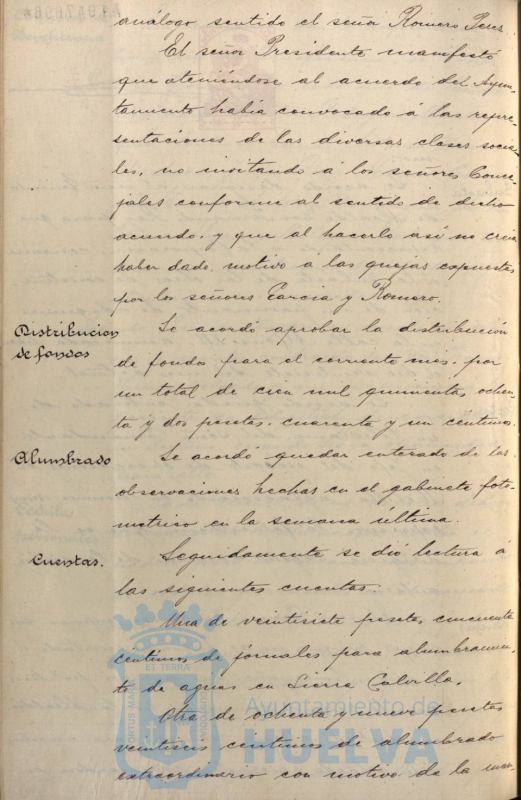 análogo sentido el señor Romero Perez
El señor Presidente manifestó
que ateniéndose al acuerdo del Ayun-
tamiento había convocado á las repre-
sentaciones de las diversas clases socia-
les, no invitando á los señores Conce-
jales conforme al sentido de dicho
acuerdo, y que al hacerlo así no creia
haber dado motivo á las quejas expuestas
por los señores Garcia y Romero.
Distribucion
de fondos
Se acordó aprobar la distribución
de fondos para el corriente mes, por
un total de cien mil quinientas ochen-
ta y dos pesetas, cuarenta y un centimos.
Alumbrado
Se acordó quedar enterado de las
observaciones hechas en el gabinete foto-
metrico en la semana última.
Cuentas.
Seguidamente se dió lectura á
las siguientes cuentas:
Una de veintisiete pesetas cincuenta
centimos de jornales para alumbramien-
to de aguas en Sierra Calvilla.
Otra de ochenta y nueve pesetas
veintiseis centimos de alumbrado
extraordinario con motivo de la
Ayuntamiento de
HUELVA
PORTUS MARIS
ET TERRA